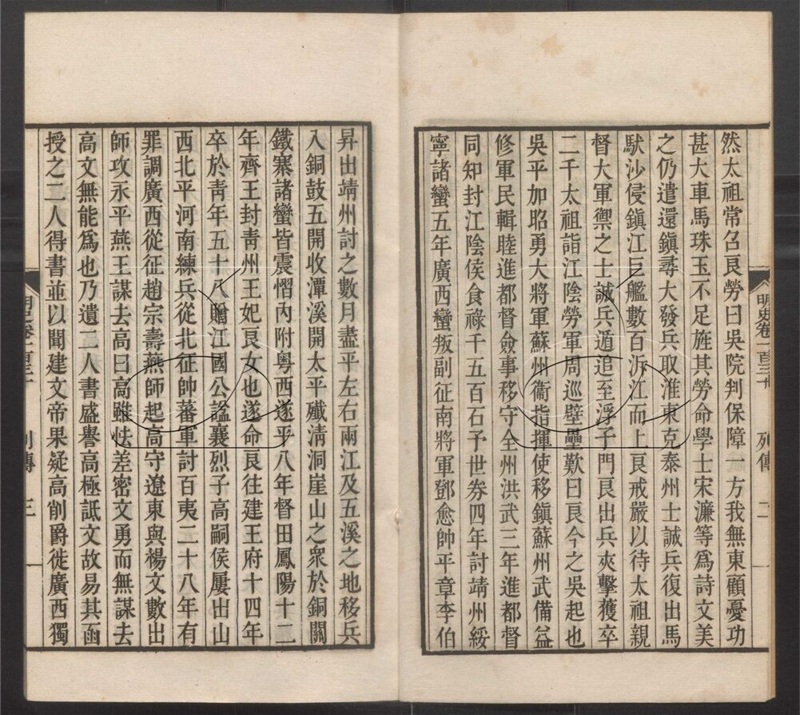 然太祖常召良勞曰吳院判保障一方我無東顧憂功
甚大車馬珠玉不足旌其勞命學士宋濂等爲詩文美
之仍遣還鎮尋大發兵取淮東克泰州士誠兵復出馬
馱沙侵鎮江巨艦數百泝江而上良戒嚴以待太祖親
督大軍禦之士誠兵遁追至浮子門良出兵夾擊獲卒
二千太祖詣江陰勞軍周巡壁壘歎曰良今之吳起也
吳平加昭勇大將軍蘇州衞指揮使移鎮蘇州武備益
修軍民輯睦進都督僉事移守全州洪武三年進都督
同知封江陰侯食祿千五百石予世券四年討靖州綏
寧諸蠻五年廣西蠻叛副征南將軍鄧愈帥平章李伯
明史卷一百三十
列傳
二
昇出靖州討之數月盡平左右兩江及五溪之地移兵
入銅鼓五開收潭溪開太平殲清洞崖山之衆於銅關
鐵寨諸蠻皆震慴內附粵西遂平八年督田鳳陽十二
年齊王封青州王妃良女也遂命良往建王府十四年
卒於青年五十八贈江國公諡襄烈子高嗣侯屢出山
西北平河南練兵從北征帥蕃軍討百夷二十八年有
罪調廣西從征趙宗壽燕師起高守遼東與楊文數出
師攻永平燕王謀去高曰高雖怯差密文勇而無謀去
高文無能爲也乃遺二人書盛譽高極詆文故易其函
授之二人得書並以聞建文帝果疑高削爵徙廣西獨
明史卷一百三十
列傳
三